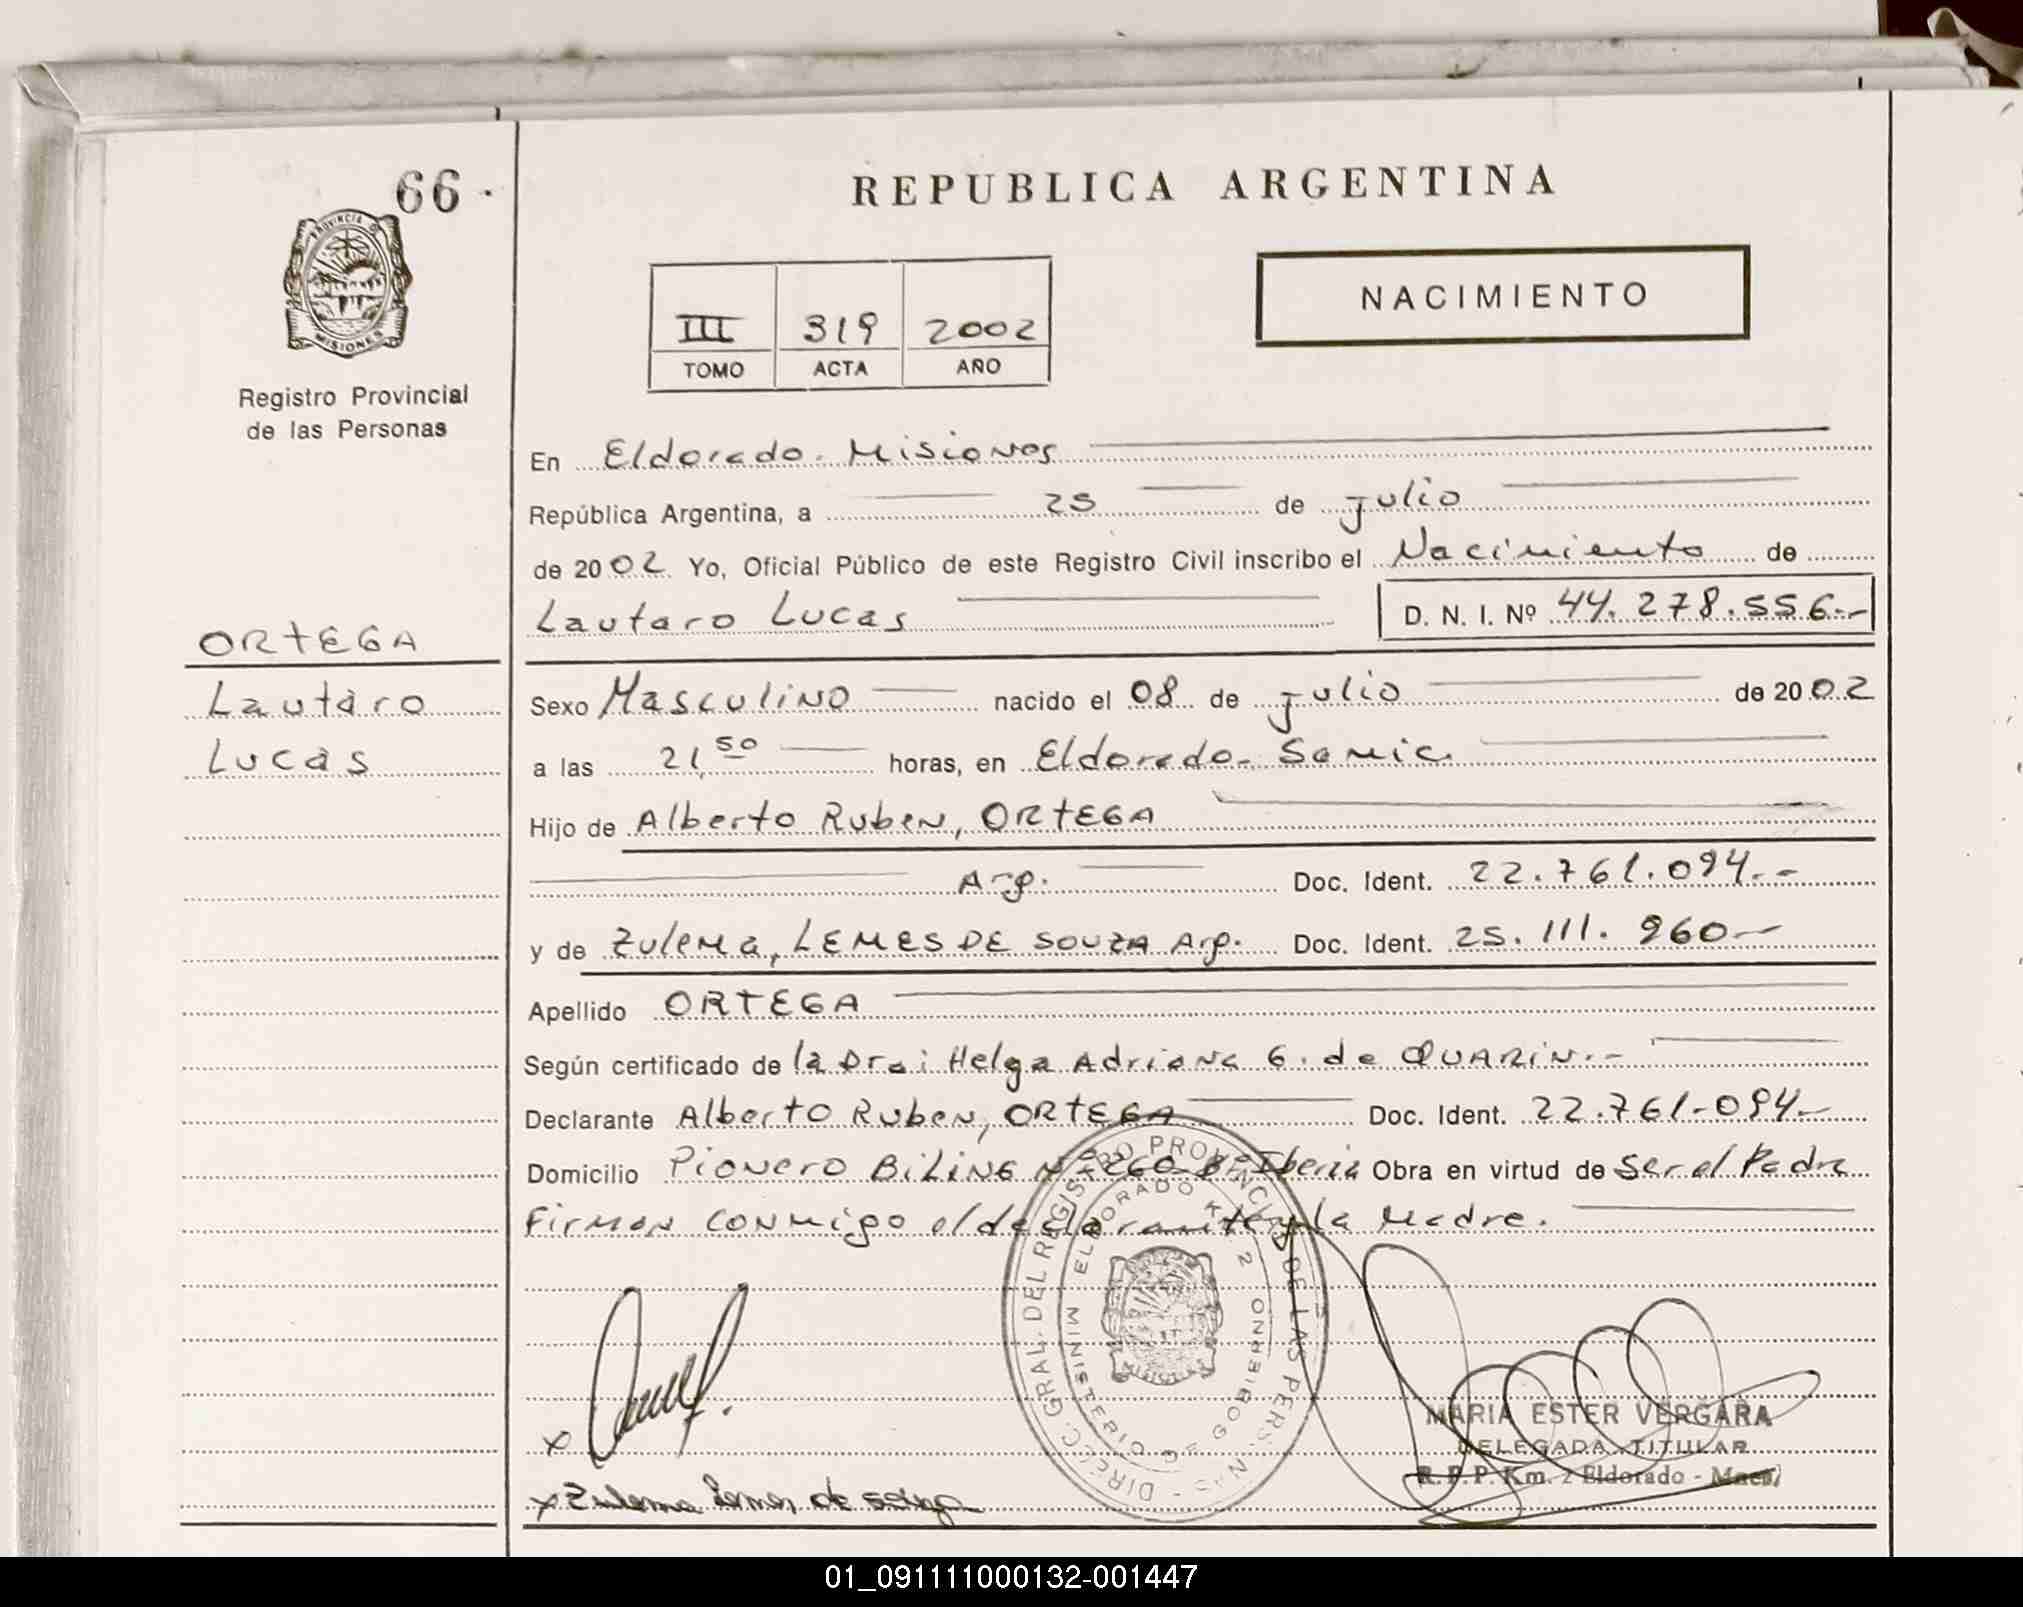 66.
PROVINCIA DE
MISIONES
Registro Provincial
de las Personas
ORTEGA
Lautaro
Lucas
REPUBLICA ARGENTINA
III 319 2002
TOMO ACTA AÑO
NACIMIENTO
En Eldorado. Misiones
República Argentina, a 25 de julio
de 2002 Yo, Oficial Público de este Registro Civil inscribo el Nacimiento de
Lautaro Lucas D. N. I. Nº 44.278.556.-
Sexo Masculino nacido el 08 de julio de 2002
a las 21,50 horas, en Eldorado. Samic.
Hijo de Alberto Ruben, ORTEGA
Arg. Doc. Ident. 22.761.094.-
y de Zulema, LEMES DE SOUZA Arg. Doc. Ident. 25.111.960-
Apellido ORTEGA
Según certificado de la Dra: Helga Adriana G. de QUARIN.-
Declarante Alberto Ruben, ORTEGA Doc. Ident. 22.761.094.-
Domicilio Pionero BiLiNG Nº 260 Bº Iberia Obra en virtud de Ser el Padre
Firman conmigo el declarante y la Madre.
DIREC. GRAL. DEL REGISTRO PROVINCIAL DE LAS PERSONAS
MINISTERIO DE GOBIERNO ELDORADO KM. 2
MARIA ESTER VERGARA
DELEGADA TITULAR
R.P.P. Km. 2 Eldorado - Mnes.
x
x Zulema Lemes de souza
01_091111000132-001447